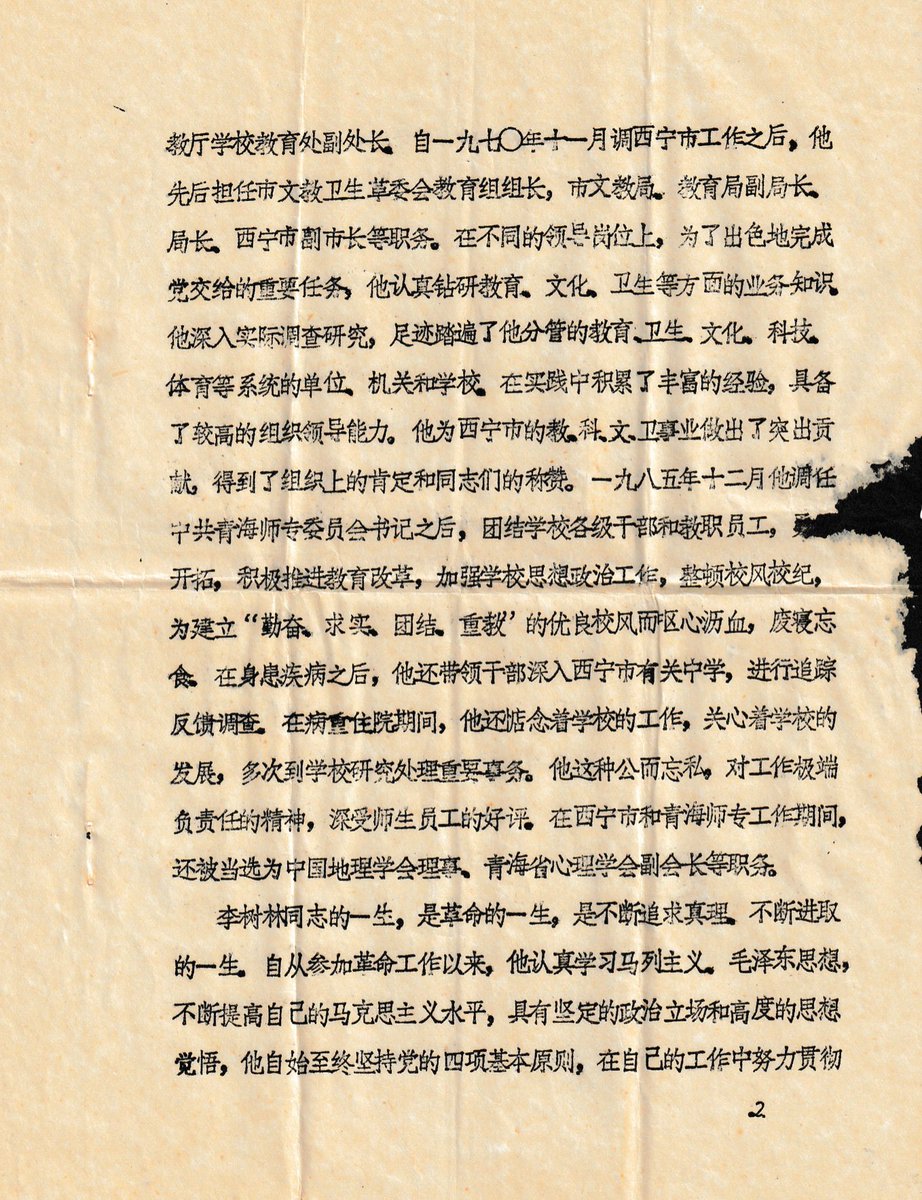 教厅学校教育处副处长。自一九七〇年十一月调西宁市工作之后，他
先后担任市文教卫生革委会教育组组长，市文教局、教育局副局长、
局长、西宁市副市长等职务。在不同的领导岗位上，为了出色地完成
党交给的重要任务，他认真钻研教育、文化、卫生等方面的业务知识。
他深入实际调查研究，足迹踏遍了他分管的教育、卫生、文化、科技、
体育等系统的单位、机关和学校。在实践中积累了丰富的经验，具备
了较高的组织领导能力。他为西宁市的教、科、文、卫事业做出了突出贡
献，得到了组织上的肯定和同志们的称赞。一九八五年十二月他调任
中共青海师专委员会书记之后，团结学校各级干部和教职员工，
开拓，积极推进教育改革，加强学校思想政治工作，整顿校风校纪，
为建立“勤奋、求实、团结、重教’的优良校风而抠心沥血，废寝忘
食。在身患疾病之后，他还带领干部深入西宁市有关中学，进行追踪
反馈调查。在病重住院期间，他还惦念着学校的工作，关心着学校的
发展，多次到学校研究处理重要事务。他这种公而忘私，对工作极端
负责任的精神，深受师生员工的好评。在西宁市和青海师专工作期间，
还被当选为中国地理学会理事、青海省心理学会副会长等职务。
李树林同志的一生，是革命的一生，是不断追求真理、不断进取
的一生。自从参加革命工作以来，他认真学习马列主义、毛泽东思想，
不断提高自己的马克思主义水平，具有坚定的政治立场和高度的思想
觉悟，他自始至终坚持党的四项基本原则，在自己的工作中努力贯彻
2